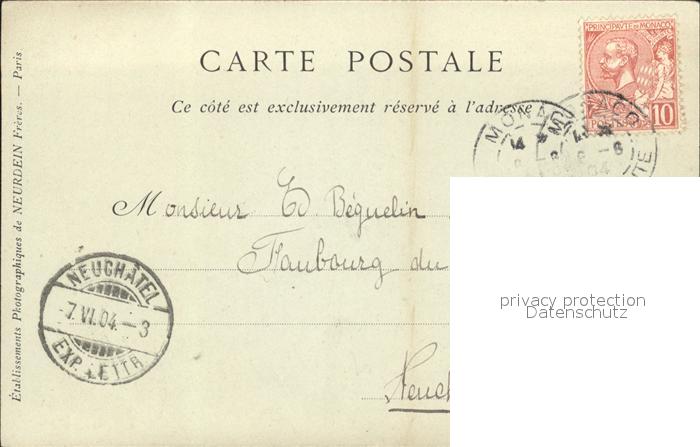 PRINCIPAUTÉ DE MONACO
CARTE POSTALE
POSTES 10
Ce côté est exclusivement réservé à l'adresse
MONACO
14
MONACO
04
Monsieur Ed. Béguelin
Faubourg du
NEUCHÂTEL
7.VI.04.-3
EXP. LETTR.
privacy protection
Datenschutz
Neuch
Établissements Photographiques de NEURDEIN Frères. — Paris